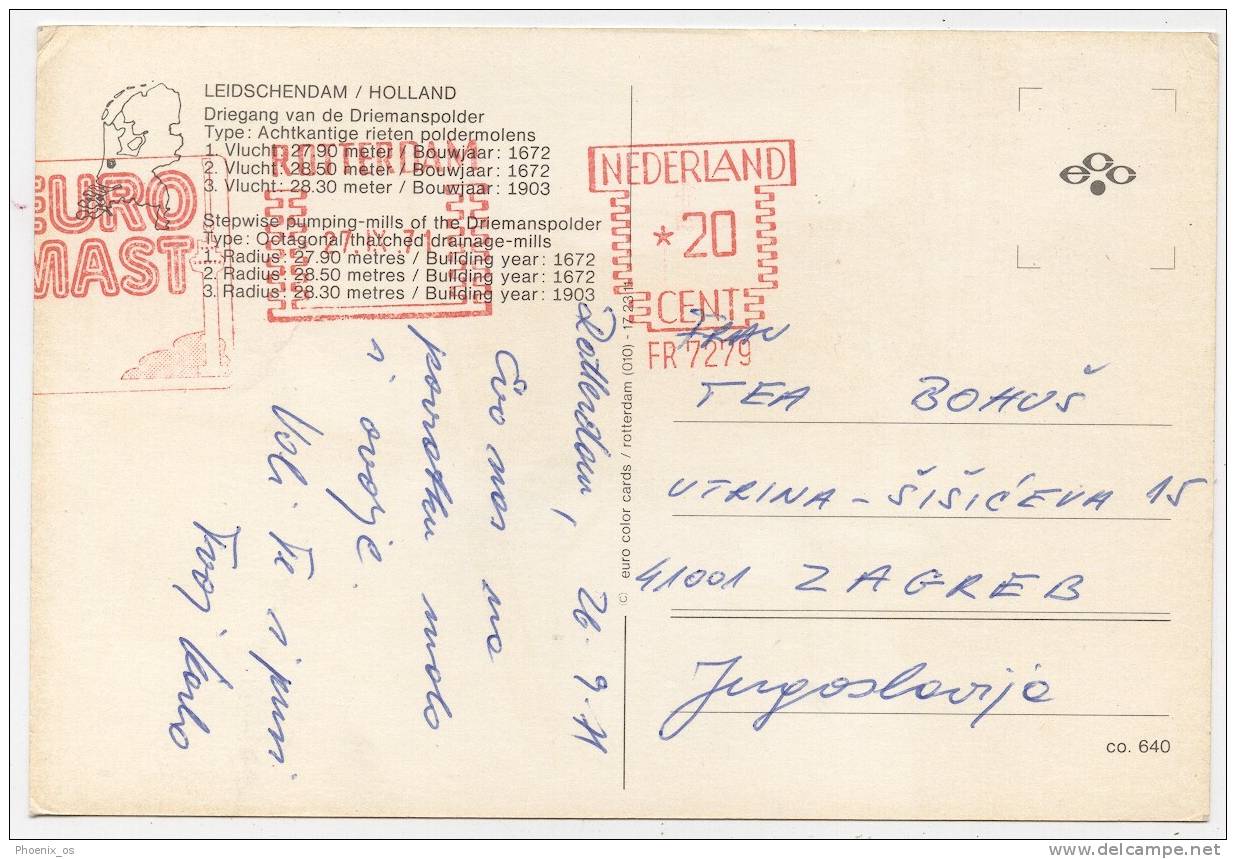 LEIDSCHENDAM / HOLLAND
Driegang van de Driemanspolder
Type: Achtkantige rieten poldermolens
1. Vlucht: 27.90 meter / Bouwjaar: 1672
2. Vlucht: 28.50 meter / Bouwjaar: 1672
3. Vlucht: 28.30 meter / Bouwjaar: 1903
Stepwise pumping-mills of the Driemanspolder
Type: Octagonal thatched drainage-mills
1. Radius: 27.90 metres / Building year: 1672
2. Radius: 28.50 metres / Building year: 1672
3. Radius: 28.30 metres / Building year: 1903
EURO
MAST
ROTTERDAM
27.IX.71
NEDERLAND
*20
CENT
FR 7279
ecc
Rotterdam, 26.9.71
Evo nas na
povratku malo
i ovdje.
Voli te i puni
Tvoj
© euro color cards / rotterdam (010) - 17 23 11
TEA BOHUŠ
UTRINA - ŠIŠIĆEVA 15
41001 ZAGREB
Jugoslavija
co. 640
Phoenix_os
www.delcampe.net